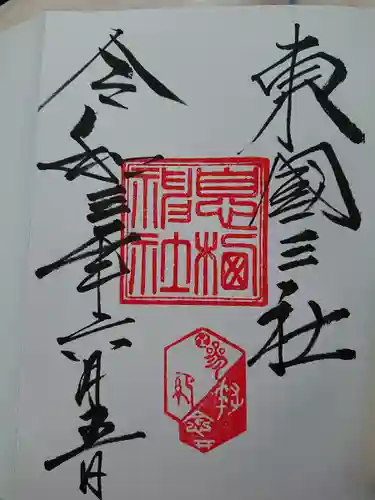 東國三社
息栖神社
令和三年六月五日